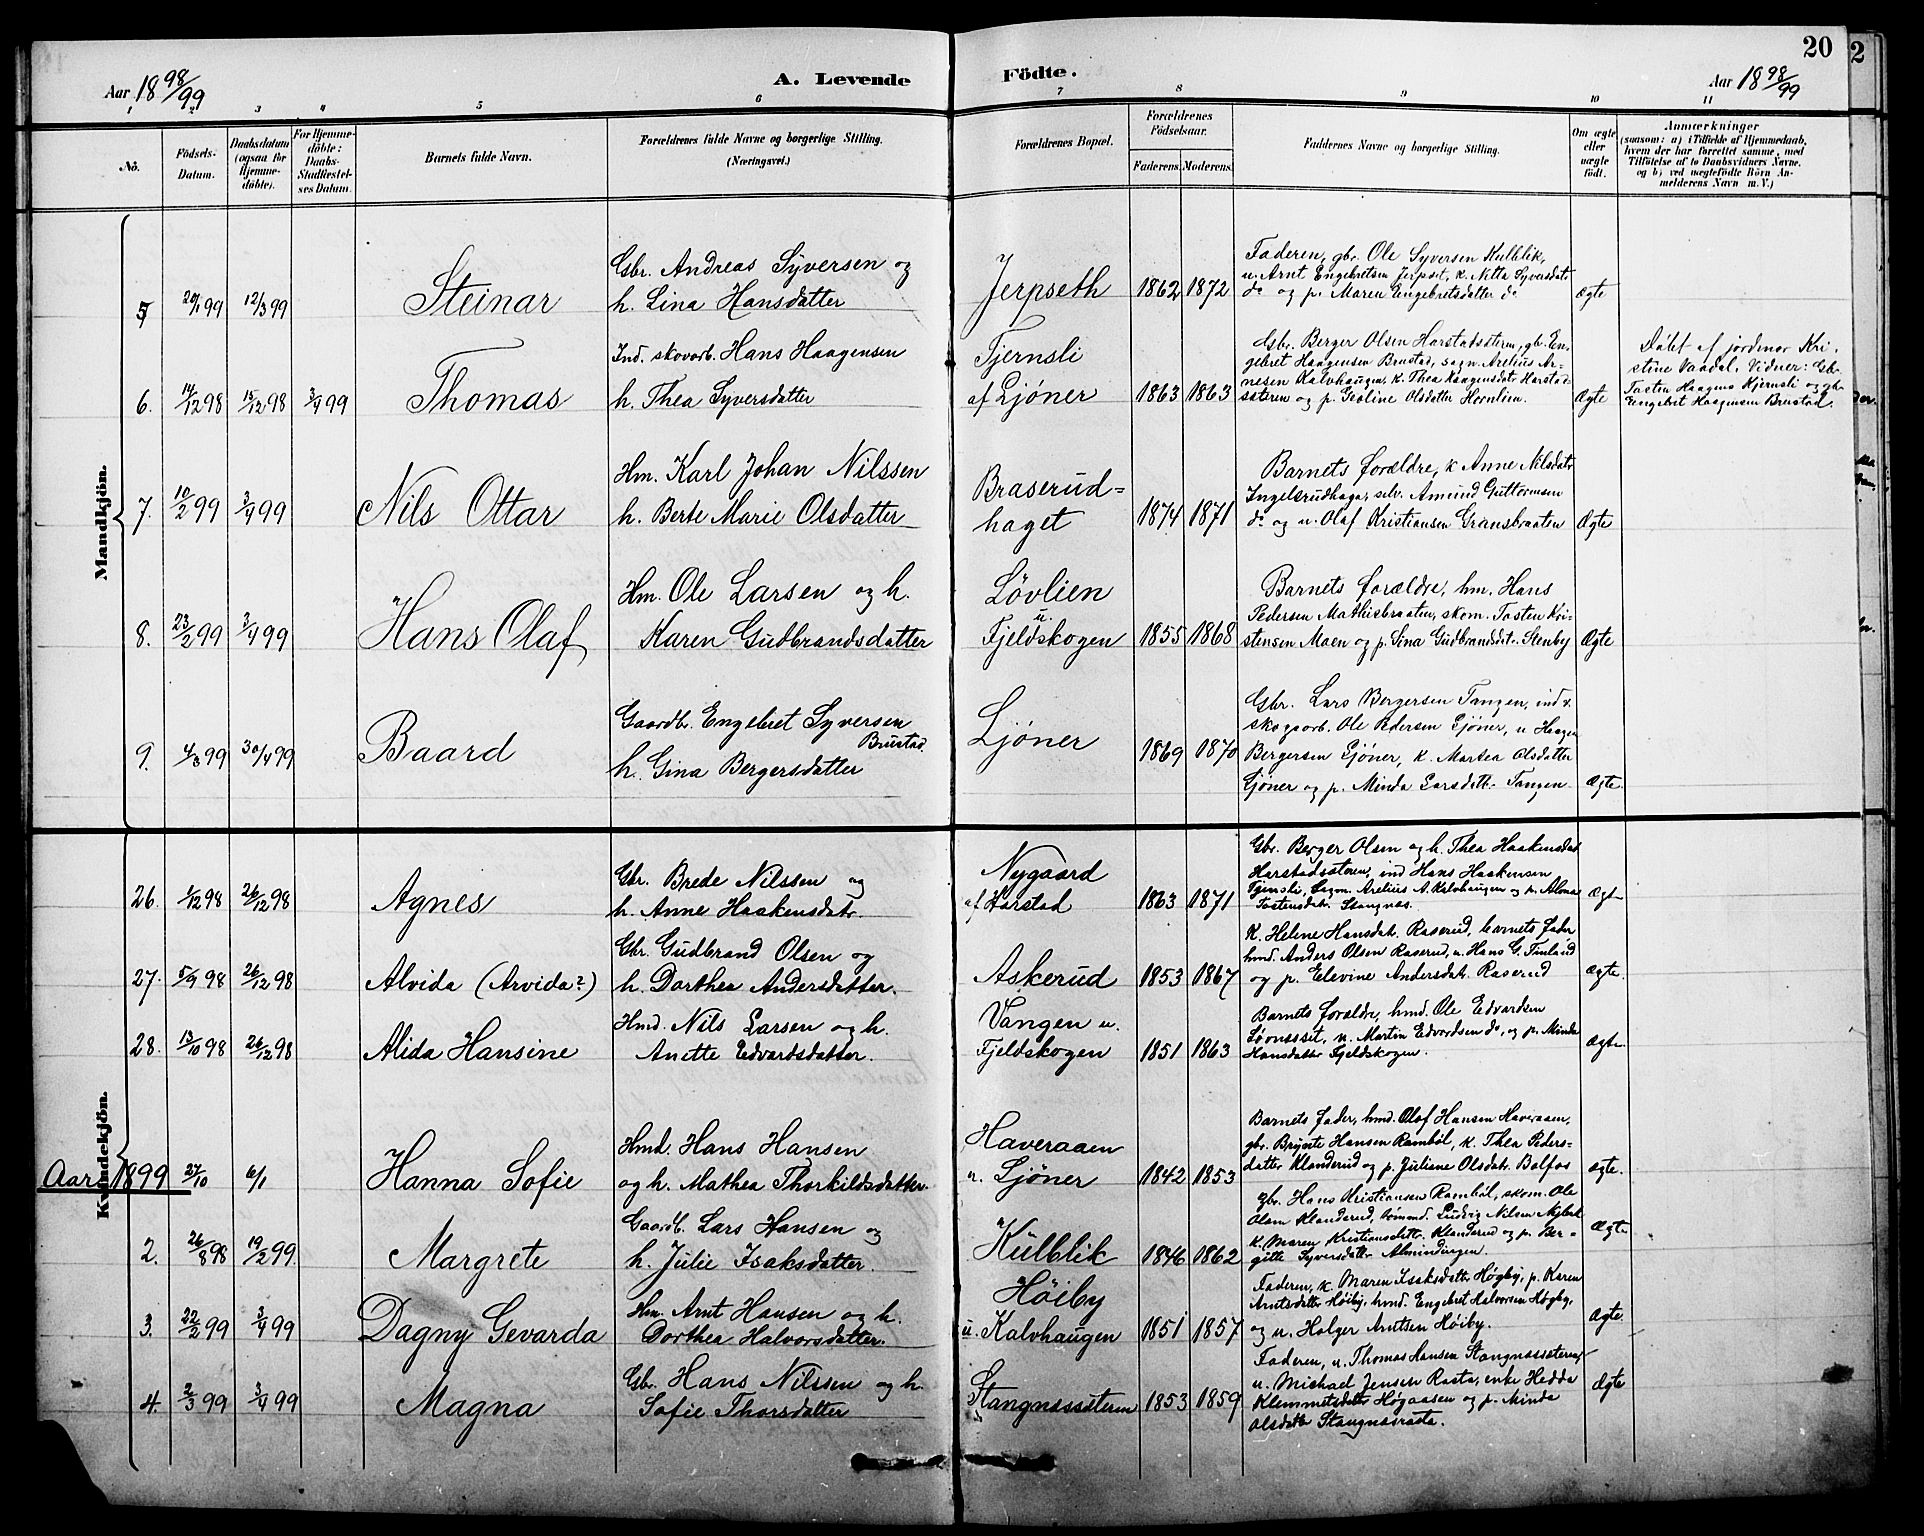 20
2
Aar 1898/99
A. Levende
Födte.
Aar 1898/99
1 2 3 4 5 6 7 8 9 10 11
No.
Födsels-Datum.
Daabsdatum (ogsaa for Hjemmedöbte).
For Hjemmedöbte: Daabs-Stadfæstelses Datum.
Barnets fulde Navn.
Forældrenes fulde Navne og borgerlige Stilling. (Næringsvei.)
Forældrenes Bopæl.
Forældrenes Födselsaar.
Faderens. Moderens.
Faddernes Navne og borgerlige Stilling.
Om ægte eller uægte födt.
Anmærkninger
(saasom: a) i Tilfælde af Hjemmedaab, hvem der har forrettet samme, med Tilföielse af to Daabsvidners Navne, og b) ved uægtefödte Börn Anmelderens Navn m. V.)
Mandkjön.
5 20/1 99 12/3 99 Steinar
Gbr. Andreas Syversen og
h. Lina Hansdatter
Jerpseth 1862 1872
Faderen, gbr. Ole Syversen Kulblik,
u. Arnt Engebretsen Jerpset, k. Netta Syversdat
do og p. Maren Engebretsdatter do
Ægte
6. 14/12 98 15/12 98 3/4 99 Thomas
Ind. skovarb. Hans Haagensen
h. Thea Syversdatter
Tjernsli
af Ljöner 1863 1863
Gbr. Berger Olsen Harstadsæteren, gbr. En-
gebret Haagensen Brustad, sagm. Arelius Ar-
nesen Kalvhaugen, k. Thea Haagensdatr Harstad-
sæteren og p. Goline Olsdatter Hornlien.
Ægte
Döbt af jordmor Kri-
stine Vaadal, Vidner: Gbr.
Tosten Haagens Kjernsli og gbr
Engebret Haagensen Brustad.
7. 10/2 99 3/4 99 Nils Ottar
Hm. Karl Johan Nilssen
h. Berte Marie Olsdatter
Braserud=
haget 1874 1871
Barnets forældre, k Anne Nilsdatr
Ingelsrudhaga, selv. Amund Guttormsen
do og u. Olaf Kristiansen Gransbraaten
Ægte
8. 23/2 99 3/4 99 Hans Olaf
Hm. Ole Larsen og h.
Karen Gudbrandsdatter
Lövlien
u
Fjeldskogen 1855 1868
Barnets forældre, hm. Hans
Pedersen Mathisbraaten, skom. Tosten Kri-
stensen Maen og p. Lina Gudbrandsdt. Stenby
Ægte
9. 4/3 99 30/4 99 Baard
Gaardbr. Engebret Syversen
Brustad
h. Gina Bergersdatter
Ljöner 1869 1870
Gbr. Lars Bergersen Tangen, ind.
skogarb. Ole Pedersen Ljöner, u Haagen
Bergersen Ljöner, k. Martea Olsdatter
Ljöner og p. Minda Larsdatt. Tangen
Ægte.
Kvindekjön.
26. 1/12 98 26/12 98 Agnes
Gbr. Brede Nilssen og
h. Anne Haakensdatr.
Nygaard
af Harstad 1863 1871
Gbr. Berger Olsen og h. Thea Haakensdat
Harstadsæteren, ind Hans Haakensen
Tjernsli, Sagm. Arelius A. Kalvhaugen og p. Alma
Tostensdatr. Stangnæs.
Ægt
27. 5/9 98 26/12 98 Alvida (Arvida?)
Gbr. Gudbrand Olsen og
h. Dorthea Andersdatter.
Askerud 1853 1867
K. Helene Hansdatr. Raserud, barnets fader
hmd. Anders Olsen Raserud, u. Hans G. Finland
og p. Elevine Andersdatr. Raserud
Ægte.
28. 13/10 98 26/12 98 Alida Hansine
Hmd. Nils Larsen og h.
Anette Edvardsdatter.
Vangen u.
Fjeldskogen 1851 1863
Barnets forældre, hmd. Ole Edvardsen
Lönæsset, u. Martin Edvardsen do, og p. Minda
Hansdatter Fjeldskogen.
Ægte.
Aar 1899 27/10 6/1 Hanna Sofie
Hmd. Hans Hansen
og h. Mathea Thorkildsdatter.
Haveraaen
u. Ljöner 1842 1853
Barnets fader, hmd. Olaf Hansen Haveraaen,
gbr. Brynte Hansen Ramböl, k. Thea Peders-
datter Klanderud og p. Juliane Olsdatr. Bolfos
Ægte.
2. 26/8 98 19/2 99. Margrete
Gaardb. Lars Hansen og
h. Julie Isaksdatter.
Kulblik 1846 1862
gbr. Hans Kristiansen Ramböl, skom. Ole
Olsen Klanderud, Ludvig Nilsen
k. Maren Kristiansdatr. Klanderud og p. Ber-
gitte Syversdatr. Almindingen.
Ægte
3. 22/2 99 3/4 99 Dagny Gevarda
Hm. Arnt Hansen og h.
Dorthea Halvorsdatter.
Höiby
u. Kalvhaugen 1851 1857
Faderen, k. Maren Isaksdatter Högby, p. Karen
Arntsdatter Höiby, hmd. Engebret Halvorsen Högby,
og u. Holger Arntsen Höiby.
Ægte.
4. 2/3 99 3/4 99 Magna
Gbr. Hans Nilssen og h.
Sofie Thorsdatter
Stangnæssæteren 1853 1859
Faderen, u. Thomas Hansen Stangnæssæteren,
u. Michael Jensen Rasta, enke Hedda
Klemmetsdatter Högaasen og p. Minda
Olsdatter Stangnæsrasta.
Ægte